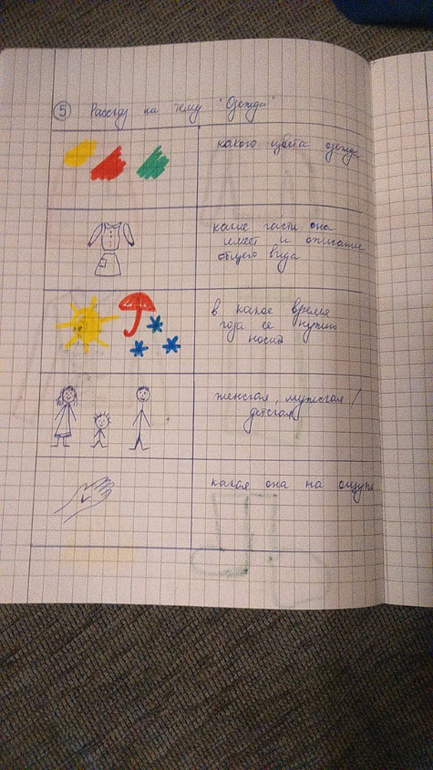 ⑤ Рассказ на тему "Одежда"
какого цвета одежда
какие части она
имеет и описание
общего вида
в какое время
года её нужно
носить
женская, мужская /
детская
какая она на ощупь